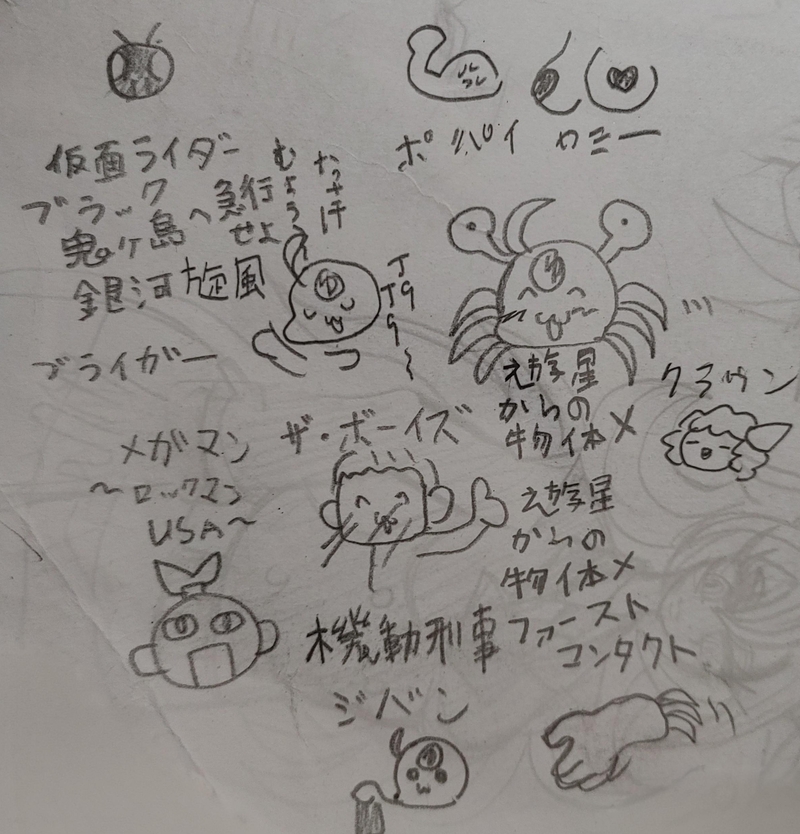 仮面ライダー
ブラック
鬼ヶ島へ急行
せよ
銀河旋風
ブライガー
ポパイ
カニー
メガマン
〜ロックマン
USA〜
ザ・ボーイズ
ゆ
ゆ
遊星
からの
物体X
クラウン
遊星
からの
物体X
ファースト
コンタクト
機動刑事
ジバン